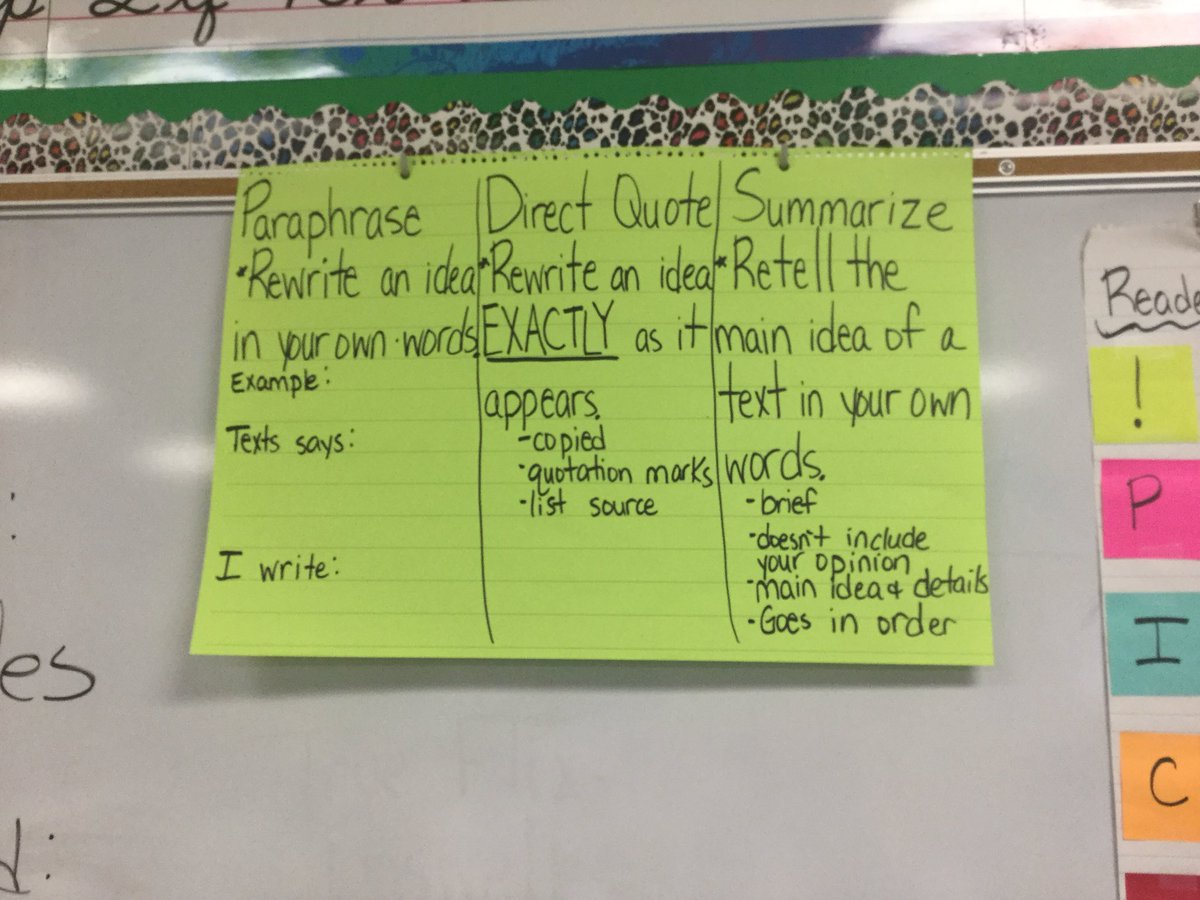 Paraphrase
*Rewrite an idea
in your own words.
Example:
Texts says:
I write:
Direct Quote
*Rewrite an idea
EXACTLY as it
appears.
-copied
-quotation marks
-list source
Summarize
*Retell the
main idea of a
text in your own
words.
-brief
-doesn't include
your opinion
-main idea & details
-Goes in order
!
P
I
C